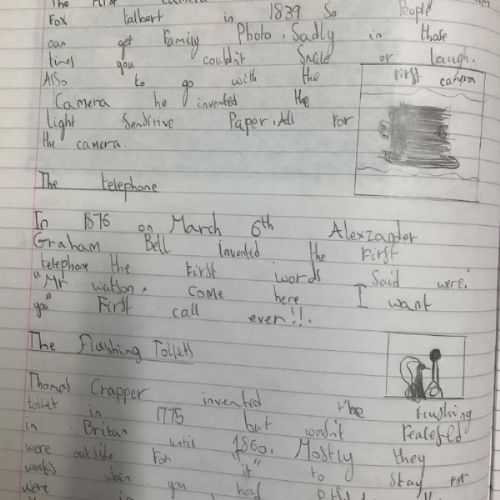 The First camera
Fox talbert in 1839 So People
can get Family Photo. Sadly in those
times you couldn't Smile or laugh.
Also to go with the
Camera he invented the
light Sensitive Paper. All For
the camera.
First camera
The telephone
In 1876 on March 6th Alexzander
Graham Bell invented the First
telephone the First words Said were:
"Mr watson, come here I want
you" First call ever!!.
The Flushing Toilets
Thomas Crapper invented the Flushing
toilet in 1775 but wasn't
in Britan until 1860. Mostly they
were outside For "it" to Stay For
weeks when you had
were in